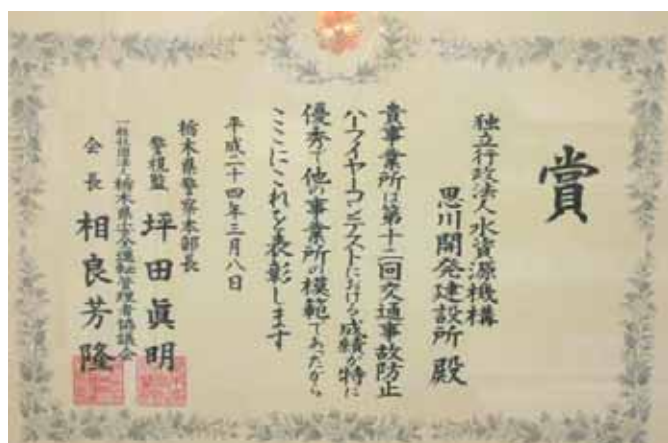 賞
独立行政法人水資源機構
思川開発建設所 殿
貴事業所は第十二回交通事故防止
ハーフイヤーコンテストにおける成績が特に
優秀で他の事業所の模範であったから
ここにこれを表彰します
平成二十四年三月八日
栃木県警察本部長
警視監 坪田眞明
一般社団法人栃木県安全運転管理者協議会
会長 相良芳隆